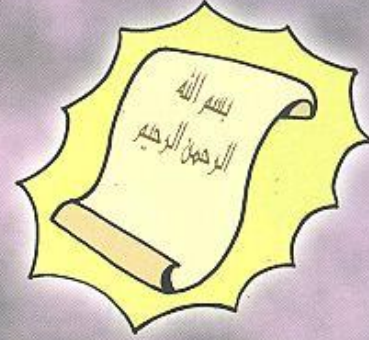 بسم الله
الرحمن الرحيم